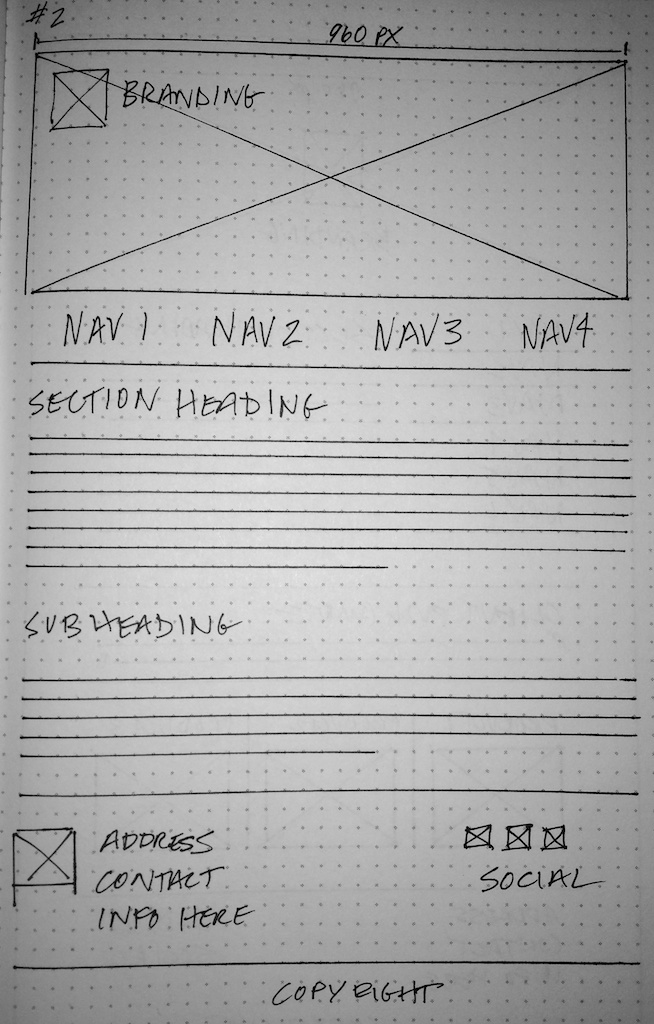 #2
960 PX
BRANDING
NAV 1 NAV 2 NAV 3 NAV 4
SECTION HEADING
SUBHEADING
ADDRESS
CONTACT
INFO HERE
SOCIAL
COPYRIGHT